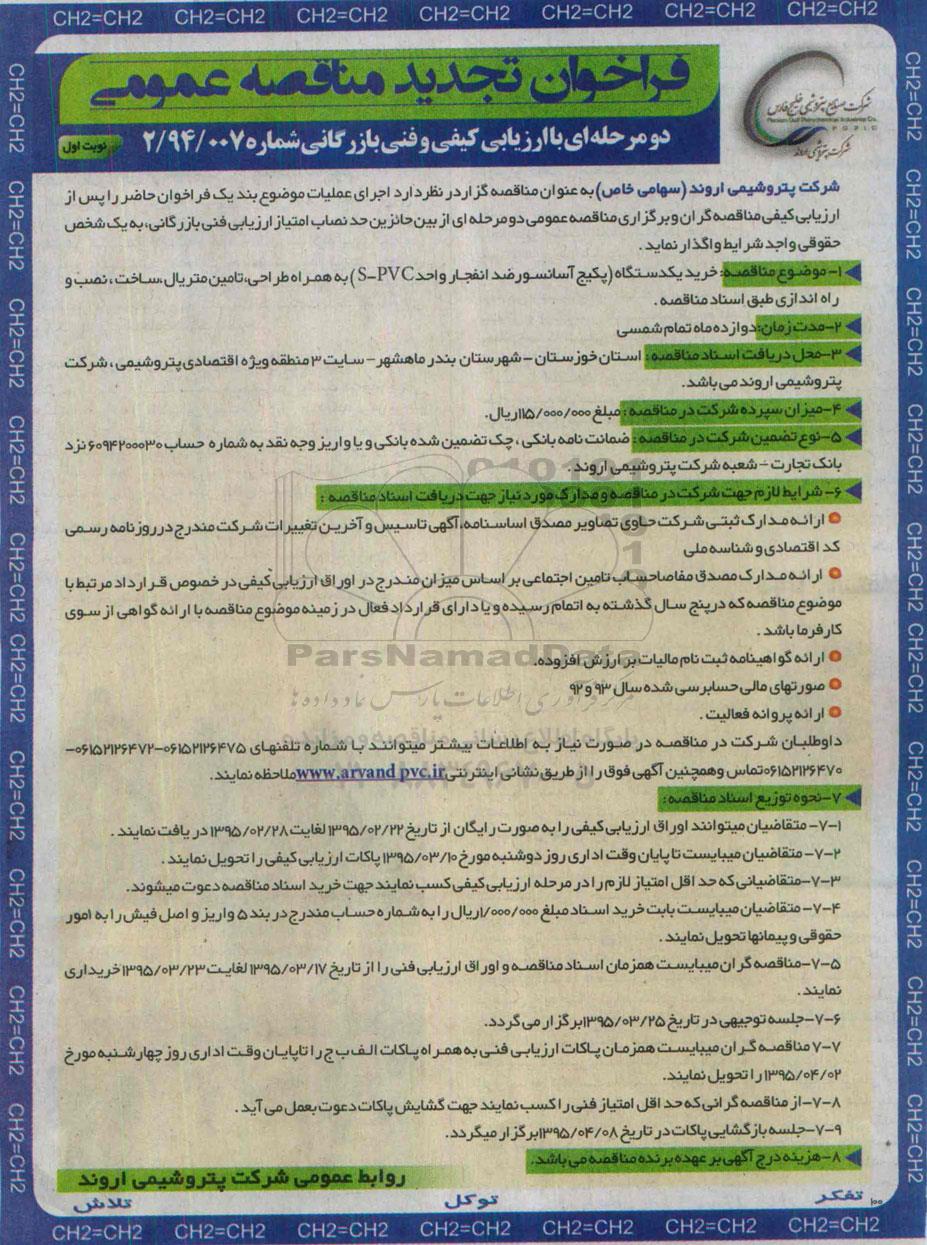 CH2=CH2 CH2=CH2 CH2=CH2 CH2=CH2 CH2=CH2 CH2=CH2 CH2=CH2
شرکت صنایع پتروشیمی خلیج فارس
Persian Gulf Petrochemical Industries Co.
P G P I C
شرکت پتروشیمی اروند
فراخوان تجدید مناقصه عمومی
دو مرحله ای با ارزیابی کیفی و فنی بازرگانی شماره ۲/۹۴/۰۰۷
نوبت اول
شرکت پتروشیمی اروند (سهامی خاص) به عنوان مناقصه گزار در نظر دارد اجرای عملیات موضوع بند یک فراخوان حاضر را پس از
ارزیابی کیفی مناقصه گران و برگزاری مناقصه عمومی دو مرحله ای از بین حائزین حد نصاب امتیاز ارزیابی فنی بازرگانی، به یک شخص
حقوقی واجد شرایط واگذار نماید .
۱- موضوع مناقصه: خرید یکدستگاه (پکیج آسانسور ضد انفجار واحد S-PVC) به همراه طراحی، تامین متریال، ساخت ، نصب و
راه اندازی طبق اسناد مناقصه .
۲-مدت زمان: دوازده ماه تمام شمسی
۳-محل دریافت اسناد مناقصه : استان خوزستان - شهرستان بندر ماهشهر- سایت ۳ منطقه ویژه اقتصادی پتروشیمی ، شرکت
پتروشیمی اروند می باشد.
۴-میزان سپرده شرکت در مناقصه : مبلغ ۱۱۵/۰۰۰/۰۰۰ریال.
۵-نوع تضمین شرکت در مناقصه : ضمانت نامه بانکی ، چک تضمین شده بانکی و یا واریز وجه نقد به شماره حساب ۶۰۹۴۲۰۰۰۳۰ نزد
بانک تجارت - شعبه شرکت پتروشیمی اروند .
۶- شرایط لازم جهت شرکت در مناقصه و مدارک مورد نیاز جهت دریافت اسناد مناقصه :
ارائه مدارک ثبتی شرکت حاوی تصاویر مصدق اساسنامه، آگهی تاسیس و آخرین تغییرات شرکت مندرج در روزنامه رسمی
کد اقتصادی و شناسه ملی
ارائه مدارک مصدق مفاصاحساب تامین اجتماعی بر اساس میزان مندرج در اوراق ارزیابی کیفی در خصوص قرارداد مرتبط با
موضوع مناقصه که در پنج سال گذشته به اتمام رسیده و یا دارای قرارداد فعال در زمینه موضوع مناقصه با ارائه گواهی از سوی
کارفرما باشد .
ارائه گواهینامه ثبت نام مالیات بر ارزش افزوده.
ParsNamadData
صورتهای مالی حسابرسی شده سال ۹۳ و ۹۲
مرکز فرآوری اطلاعات پارس نماد داده ها
ارائه پروانه فعالیت .
داوطلبان شرکت در مناقصه در صورت نیاز به اطلاعات بیشتر میتوانند با شماره تلفنهای ۰۶۱۵۲۱۲۶۴۷۵-۰۶۱۵۲۱۲۶۴۷۲-
۰۶۱۵۲۱۲۶۴۷۰تماس و همچنین آگهی فوق را از طریق نشانی اینترنتی www.arvand pvc.ir ملاحظه نمایند.
۷-نحوه توزیع اسناد مناقصه:
۷-۱- متقاضیان میتوانند اوراق ارزیابی کیفی را به صورت رایگان از تاریخ ۱۳۹۵/۰۲/۲۲ لغایت ۱۳۹۵/۰۲/۲۸ دریافت نمایند .
۷-۲- متقاضیان میبایست تا پایان وقت اداری روز دوشنبه مورخ ۱۳۹۵/۰۳/۱۰ پاکات ارزیابی کیفی را تحویل نمایند .
۷-۳-متقاضیانی که حد اقل امتیاز لازم را در مرحله ارزیابی کیفی کسب نمایند جهت خرید اسناد مناقصه دعوت میشوند.
۷-۴- متقاضیان میبایست بابت خرید اسناد مبلغ ۱/۰۰۰/۰۰۰ریال را به شماره حساب مندرج در بند ۵ واریز و اصل فیش را به امور
حقوقی و پیمانها تحویل نمایند .
۷-۵-مناقصه گران میبایست همزمان اسناد مناقصه و اوراق ارزیابی فنی را از تاریخ ۱۳۹۵/۰۳/۱۷ لغایت ۱۳۹۵/۰۳/۲۳خریداری
نمایند .
۷-۶-جلسه توجیهی در تاریخ ۱۳۹۵/۰۳/۲۵برگزار می گردد.
۷-۷ مناقصه گران میبایست همزمان پاکات ارزیابی فنی به همراه پاکات الف ب ج را تاپایان وقت اداری روز چهارشنبه مورخ
۱۳۹۵/۰۴/۰۲ را تحویل نمایند.
۷-۸-از مناقصه گرانی که حد اقل امتیاز فنی را کسب نمایند جهت گشایش پاکات دعوت بعمل می آید .
۷-۹-جلسه بازگشایی پاکات در تاریخ ۱۳۹۵/۰۴/۰۸برگزار میگردد.
۸-هزینه درج آگهی بر عهده برنده مناقصه می باشد.
روابط عمومی شرکت پتروشیمی اروند
تفکر توکل تلاش
۱۰۰
CH2=CH2 CH2=CH2 CH2=CH2 CH2=CH2 CH2=CH2 CH2=CH2 CH2=CH2